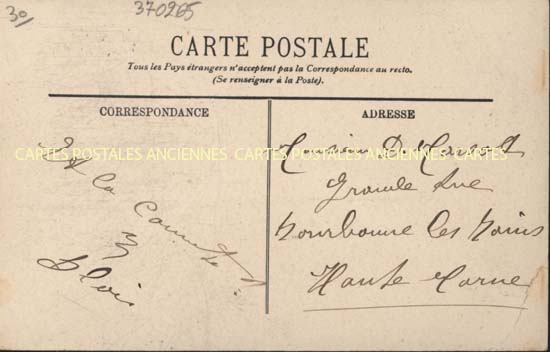 30/
370265
CARTE POSTALE
Tous les Pays étrangers n'acceptent pas la Correspondance au recto.
(Se renseigner à la Poste).
CORRESPONDANCE
ADRESSE
CARTES POSTALES ANCIENNES CARTES POSTALES ANCIENNES CARTES
la
Blois
Monsieur D.
Grande Rue
Bourbonne les Bains
Haute Marne